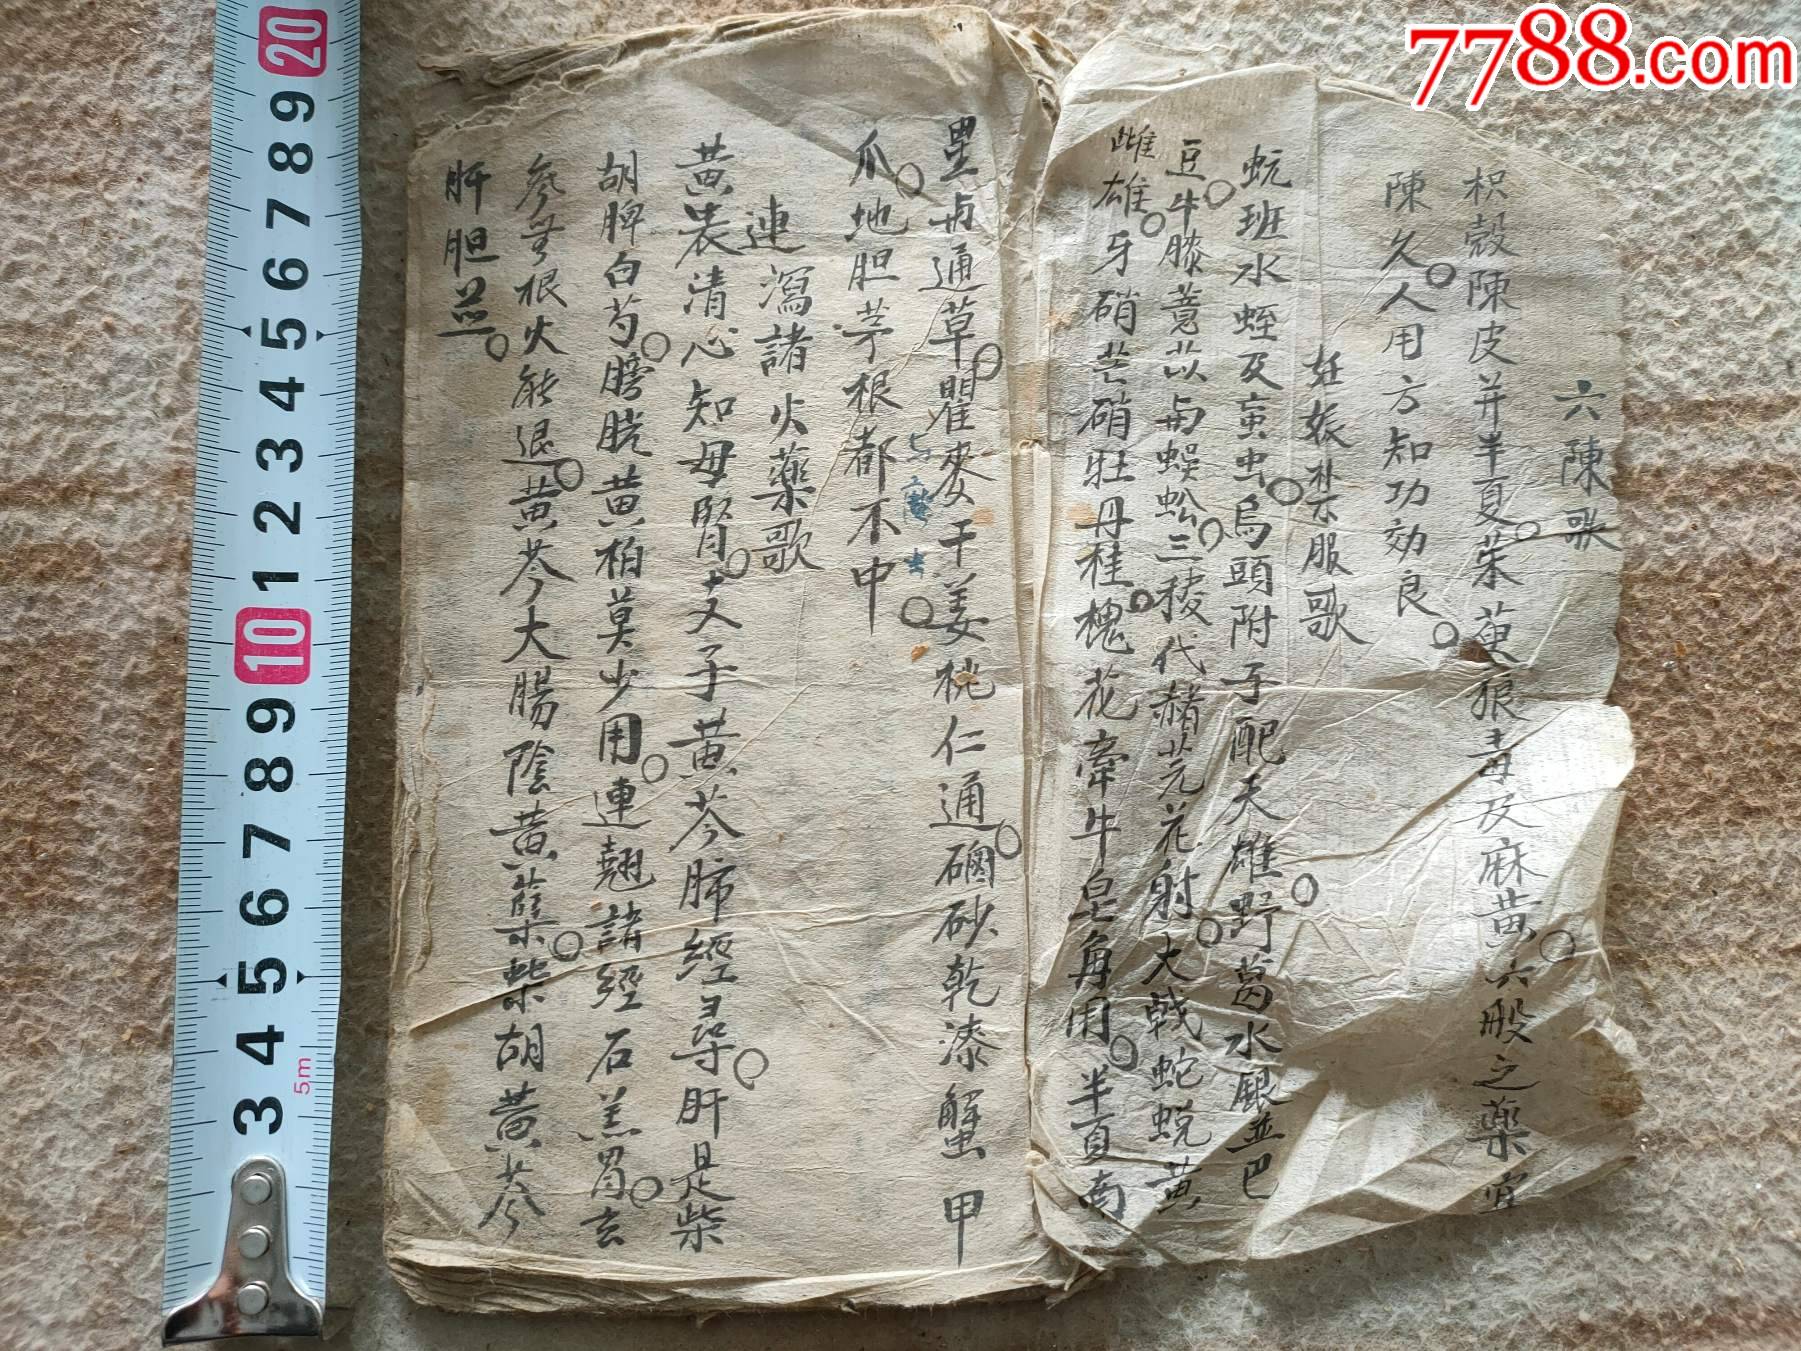 六陳歌
枳殼陳皮并半夏。茱萸狼毒及麻黃。六般之藥宜
陳久。人用方知功効良。
妊娠禁服歌
蚖班水蛭及寅虫。烏頭附子配天雄。野葛水銀並巴
豆。牛膝薏苡与蜈蚣。三稜代赭芫花射。大戟蛇蛻黃
雌雄。牙硝芒硝牡丹桂。槐花牽牛皂角用。半夏南
星与通草。瞿麥干姜桃仁通。硇砂乾漆蟹甲
爪。地胆茅根都不中。
連瀉諸火藥歌
黃裝清心知母腎。支子黃芩肺經尋。肝是柴
胡脾白芍。膀胱黃柏莫少用。連翹諸經石羔胃。玄
參無根火能退。黃芩大腸陰黃蘗。柴胡黃芩
肝胆並。
7788.com
20
9
8
7
6
5
4
3
2
1
10
9
8
7
6
5
4
3
5m